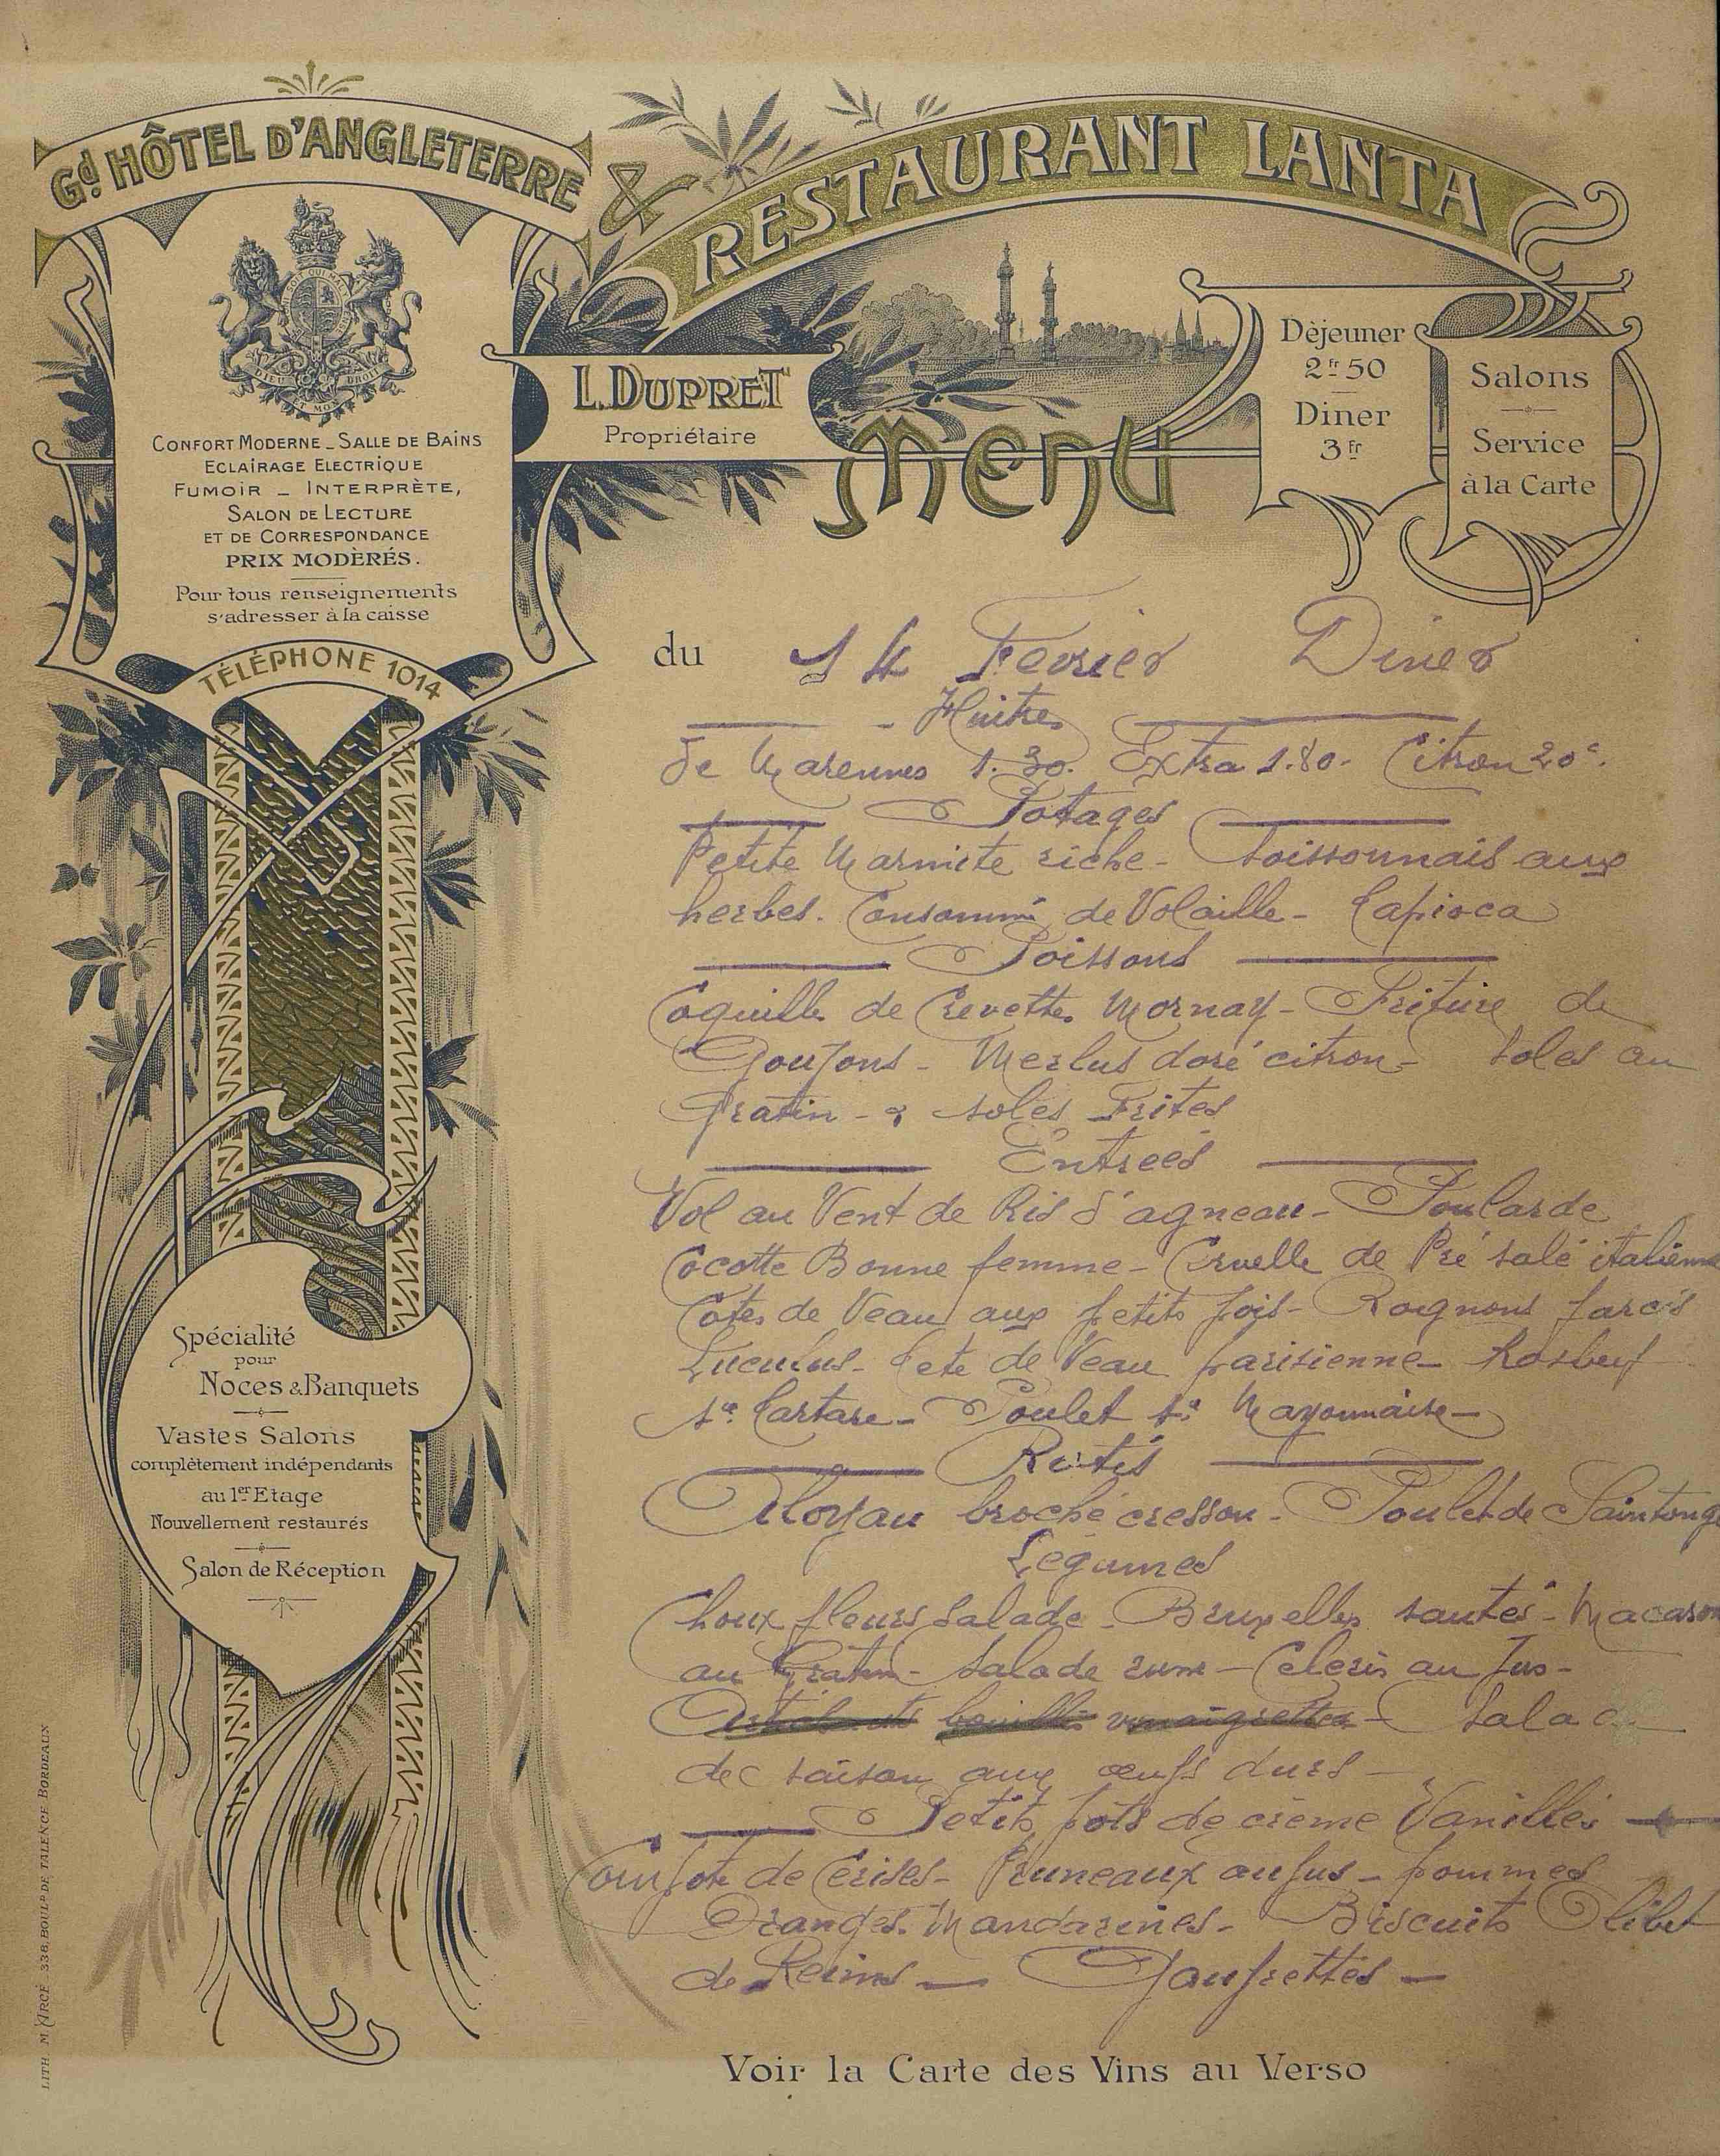 Gd. HÔTEL D'ANGLETERRE
&
RESTAURANT LANTA
DIEU ET MON DROIT
CONFORT MODERNE _ SALLE DE BAINS
ECLAIRAGE ELECTRIQUE
FUMOIR _ INTERPRÈTE,
SALON DE LECTURE
ET DE CORRESPONDANCE
PRIX MODÈRÉS.
Pour tous renseignements
s'adresser à la caisse
TÉLÉPHONE 1014
L. DUPRET
Propriétaire
MENU
Dèjeuner
2fr 50
Diner
3fr
Salons
Service
à la Carte
du 14 Fevrier Diner
- Huitres
de Marennes 1.30. Extra 1.80. Citron 20c.
Potages
Petite Marmite riche - Soissonnais aux
herbes. Consommé de Volaille - Tapioca
Poissons
Coquille de Crevettes Mornay - Friture de
Goujons - Merlus doré citron - Soles au
Gratin - & soles Frites
Entrees
Vol au Vent de Ris d'agneau - Poularde
Cocotte Bonne femme - Cervelle de Pré salé italienne
Cotes de Veau aux petits pois - Rognons farcis
Lucullus - Tete de Veau parisienne - Rosbeuf
sce Tartare - Poulet sce Mayonnaise -
Rotis
Aloyau broche cresson - Poulet de Saintonge
Legumes
Choux fleurs Salade - Bruxelles sautés - Macaroni
au Gratin - Salade russe - Celeris au Jus -
Artichauts bouillis vinaigrette - Salade
de saison aux œufs durs -
Petits pots de crème Vanillés
Compote de Cerises - Pruneaux au jus - pommes
Oranges. Mandarines - Biscuits Olibet
de Reims - Gaufrettes -
Voir la Carte des Vins au Verso
Spécialité
pour
Noces & Banquets
Vastes Salons
complètement indépendants
au 1er Etage
Nouvellement restaurés
Salon de Réception
LITH. M. ARCÉ 338, BOULd DE TALENCE BORDEAUX